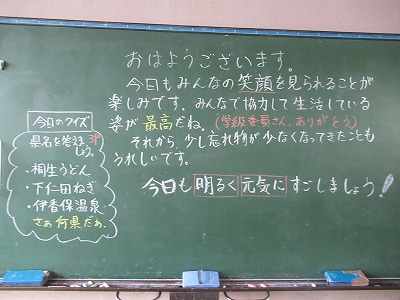 おはようございます。
今日もみんなの笑顔を見られることが
楽しみです。みんなで協力して生活している
姿が最高だね。(学級委員さん、ありがとう)
それから、少し忘れ物が少なくなってきたことも
うれしいです。
今日も明るく元気にすごしましょう!
今日のクイズ
県名を答えま
しょう。
・桐生うどん
・下仁田ねぎ
・伊香保温泉
さぁ何県だぁ。